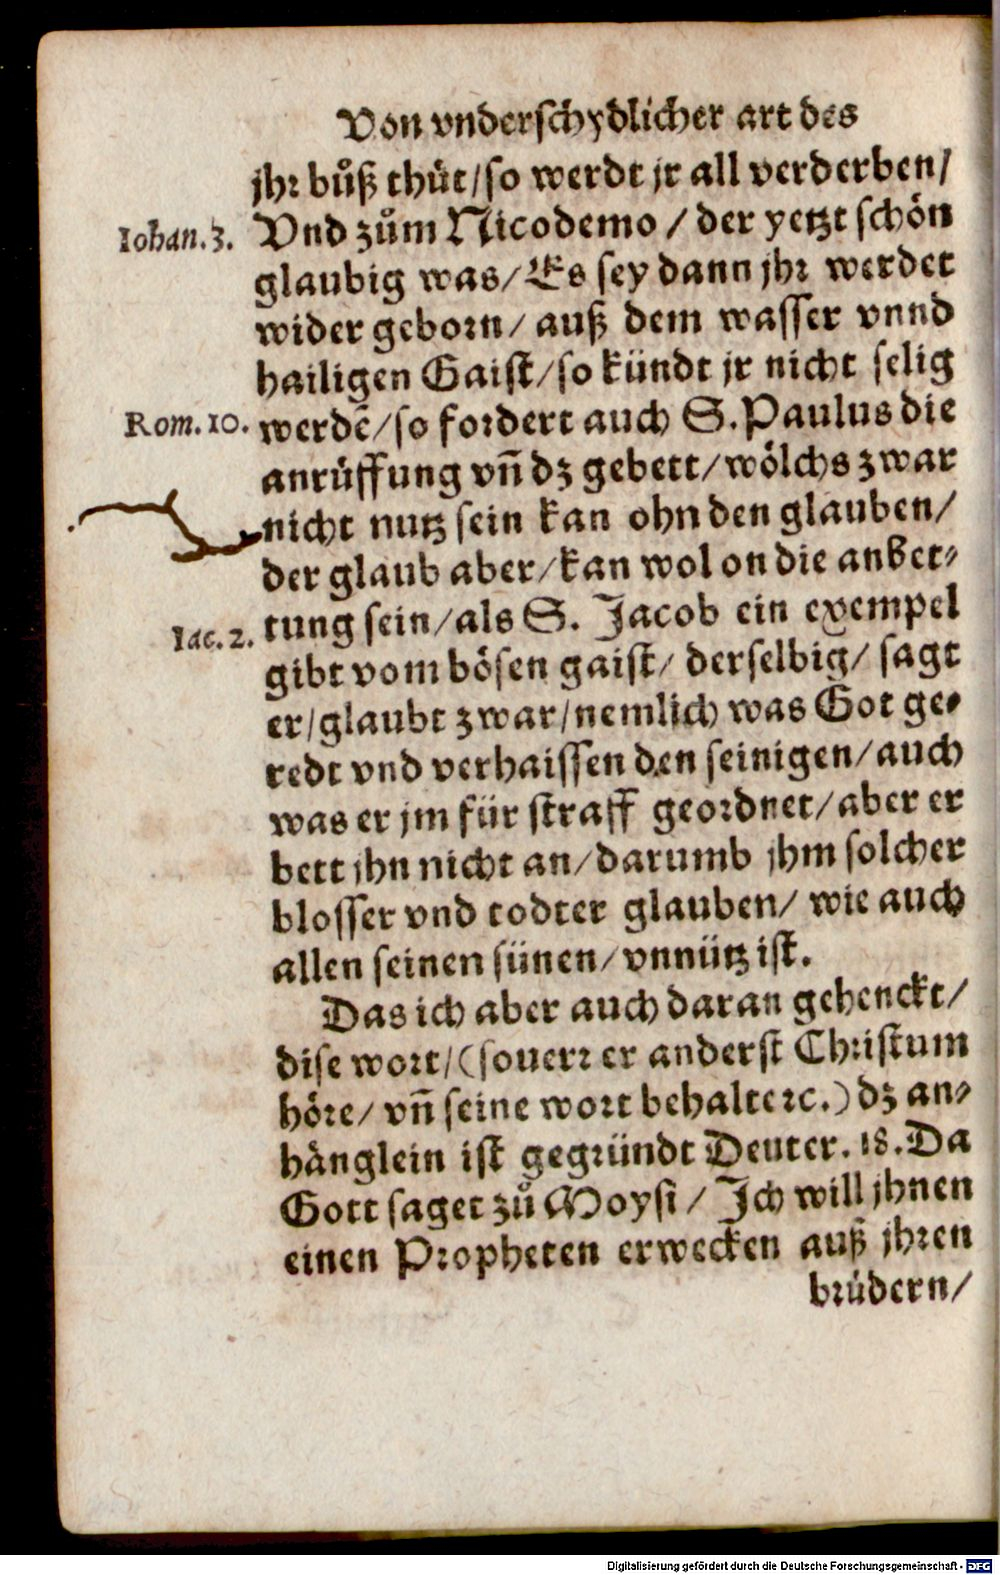 Von vnderschydlicher art des
jhr bůß thüt/so werdt jr all verderben/
Iohan.3. Vnd zům Nicodemo / der yetzt schön
glaubig was/ Es sey dann jhr werdet
wider geborn/ auß dem wasser vnnd
hailigen Gaist/so kündt jr nicht selig
Rom.10. werdē/so fordert auch S.Paulus die
anrüffung vn̄ dz gebett/wölchs zwar
nicht nutz sein kan ohn den glauben/
der glaub aber/kan wol on die anbet⸗
Iac.2. tung sein/als S. Jacob ein exempel
gibt vom bösen gaist/ derselbig/ sagt
er/glaubt zwar/nemlich was Got ge⸗
redt vnd verhaissen den seinigen/auch
was er jm für straff geordnet/aber er
bett jhn nicht an/darumb jhm solcher
blosser vnd todter glauben/ wie auch
allen seinen sünen/vnnütz ist.
Das ich aber auch daran gehenckt/
dise wort/(souerr er anderst Christum
höre/ vn̄ seine wort behalt ꝛc.) dz an⸗
hänglein ist gegründt Deuter.18.Da
Gott saget zů Moysi / Ich will jhnen
einen Propheten erwecken auß jhren
brüdern/
Digitalisierung gefördert durch die Deutsche Forschungsgemeinschaft - DFG